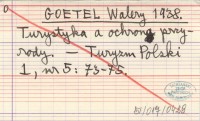 GOETEL Walery 1938.
Turystyka a ochrona przy-
rody. — Turyzm Polski
1, nr 5: 73-75.